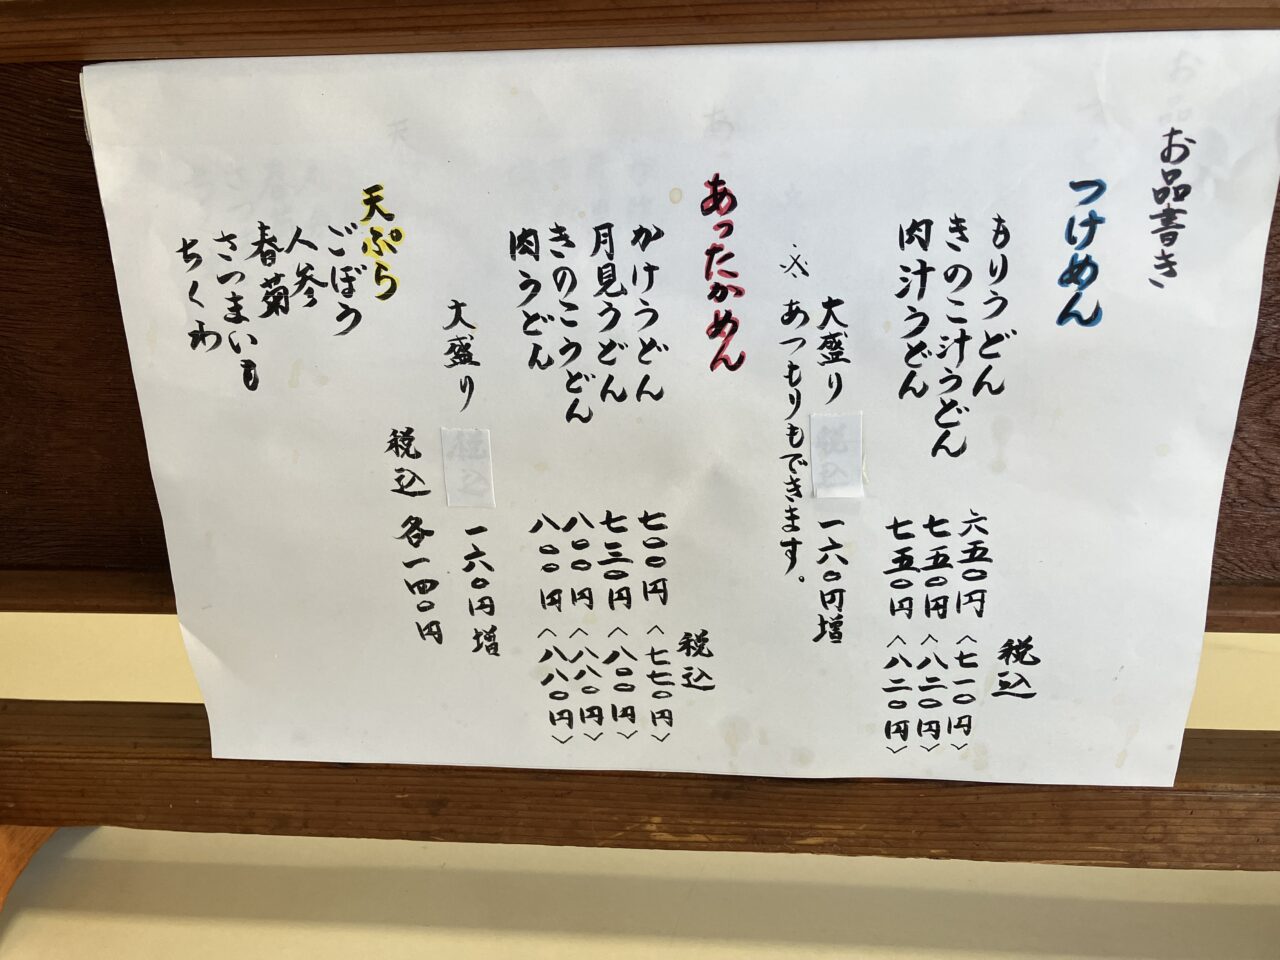 お品書き
つけめん
税込
もりうどん 六五〇円 〈七一〇円〉
きのこ汁うどん 七五〇円 〈八二〇円〉
肉汁うどん 七五〇円 〈八二〇円〉
大盛り 税込 一六〇円増
※ あつもりもできます。
あったかめん
税込
かけうどん 七〇〇円 〈七七〇円〉
月見うどん 七三〇円 〈八〇〇円〉
きのこうどん 八〇〇円 〈八八〇円〉
肉うどん 八〇〇円 〈八八〇円〉
大盛り 税込 一六〇円増
天ぷら 税込 各一四〇円
ごぼう
人参
春菊
さつまいも
ちくわ